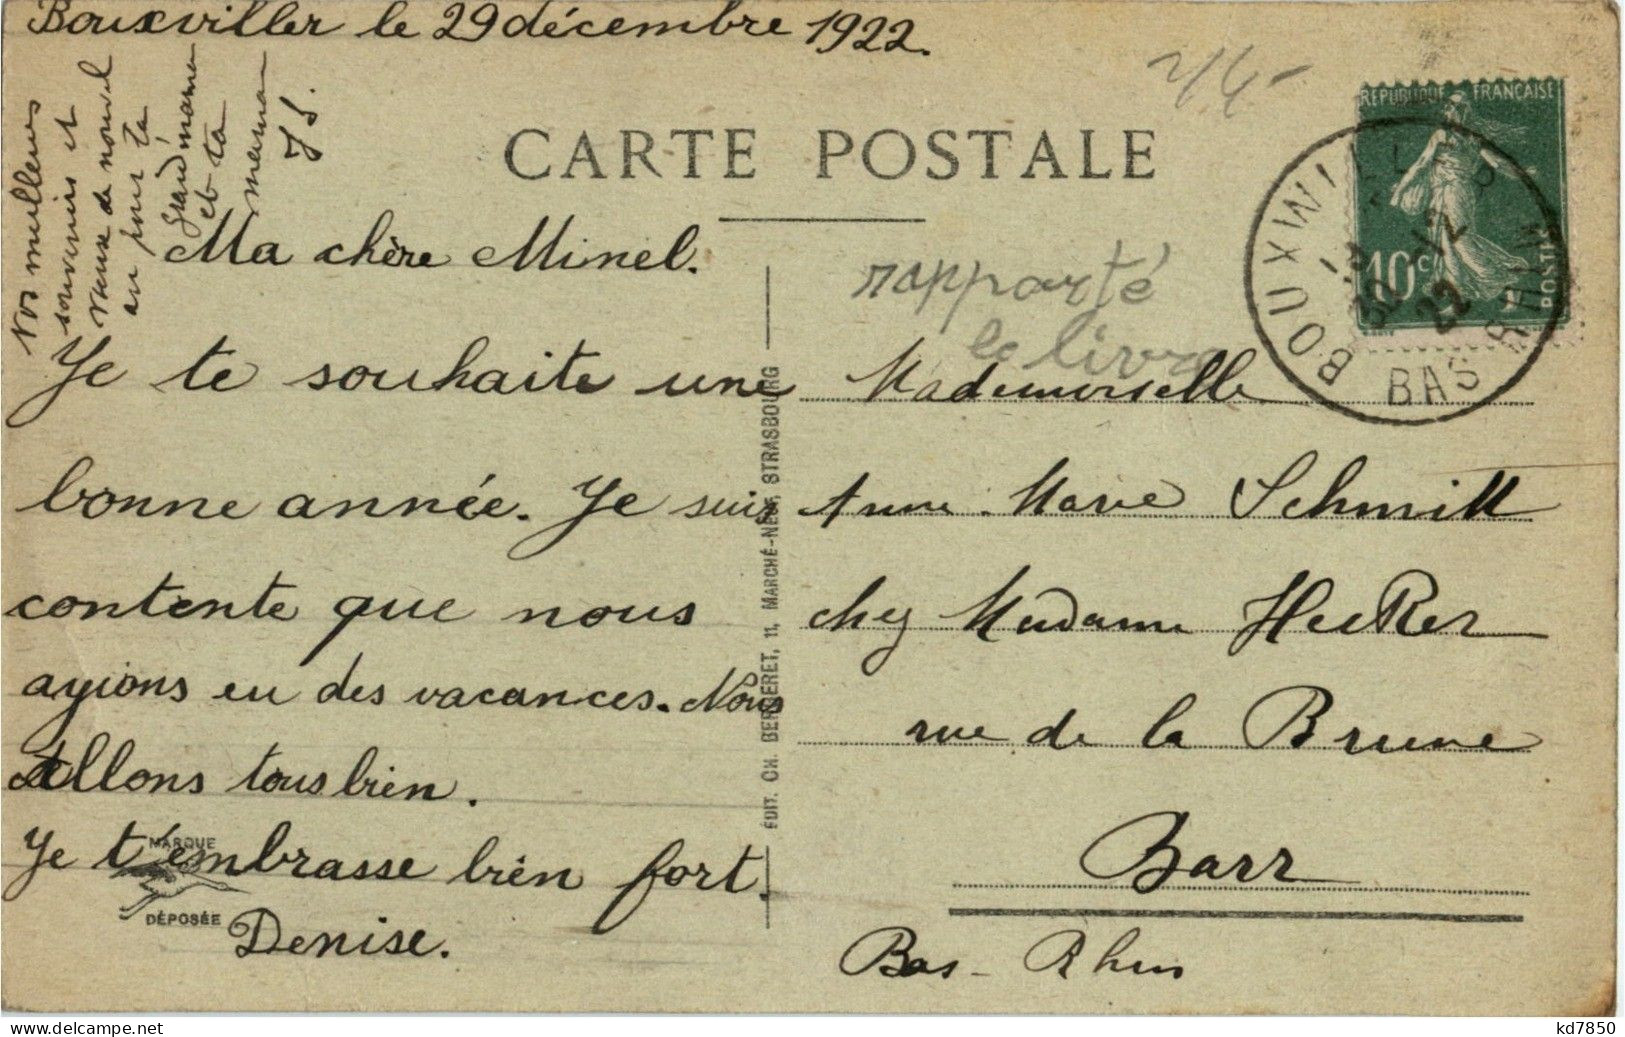 Bouxviller le 29 décembre 1922.
Nos meilleurs
souvenirs et
vœux de nouvel
an pour ta
grand'maman
et ta
maman
CARTE POSTALE
2/4-
Ma chère Minel.
Je te souhaite une
bonne année. Je suis
contente que nous
ayions eu des vacances. Nous
allons tous bien.
Je t'embrasse bien fort.
Denise.
MARQUE
DÉPOSÉE
ÉDIT. CH. BERGERET, 11, MARCHÉ-NEUF, STRASBOURG
rapporté
le livre
Mademoiselle
Anne-Marie Schmitt
chez Madame Hecker
rue de la Brune
Barr
Bas-Rhin
REPUBLIQUE FRANÇAISE
10c
POSTES
BOUXWILLER
30 -12
22
BAS RHIN
delcampe.net
kd7850